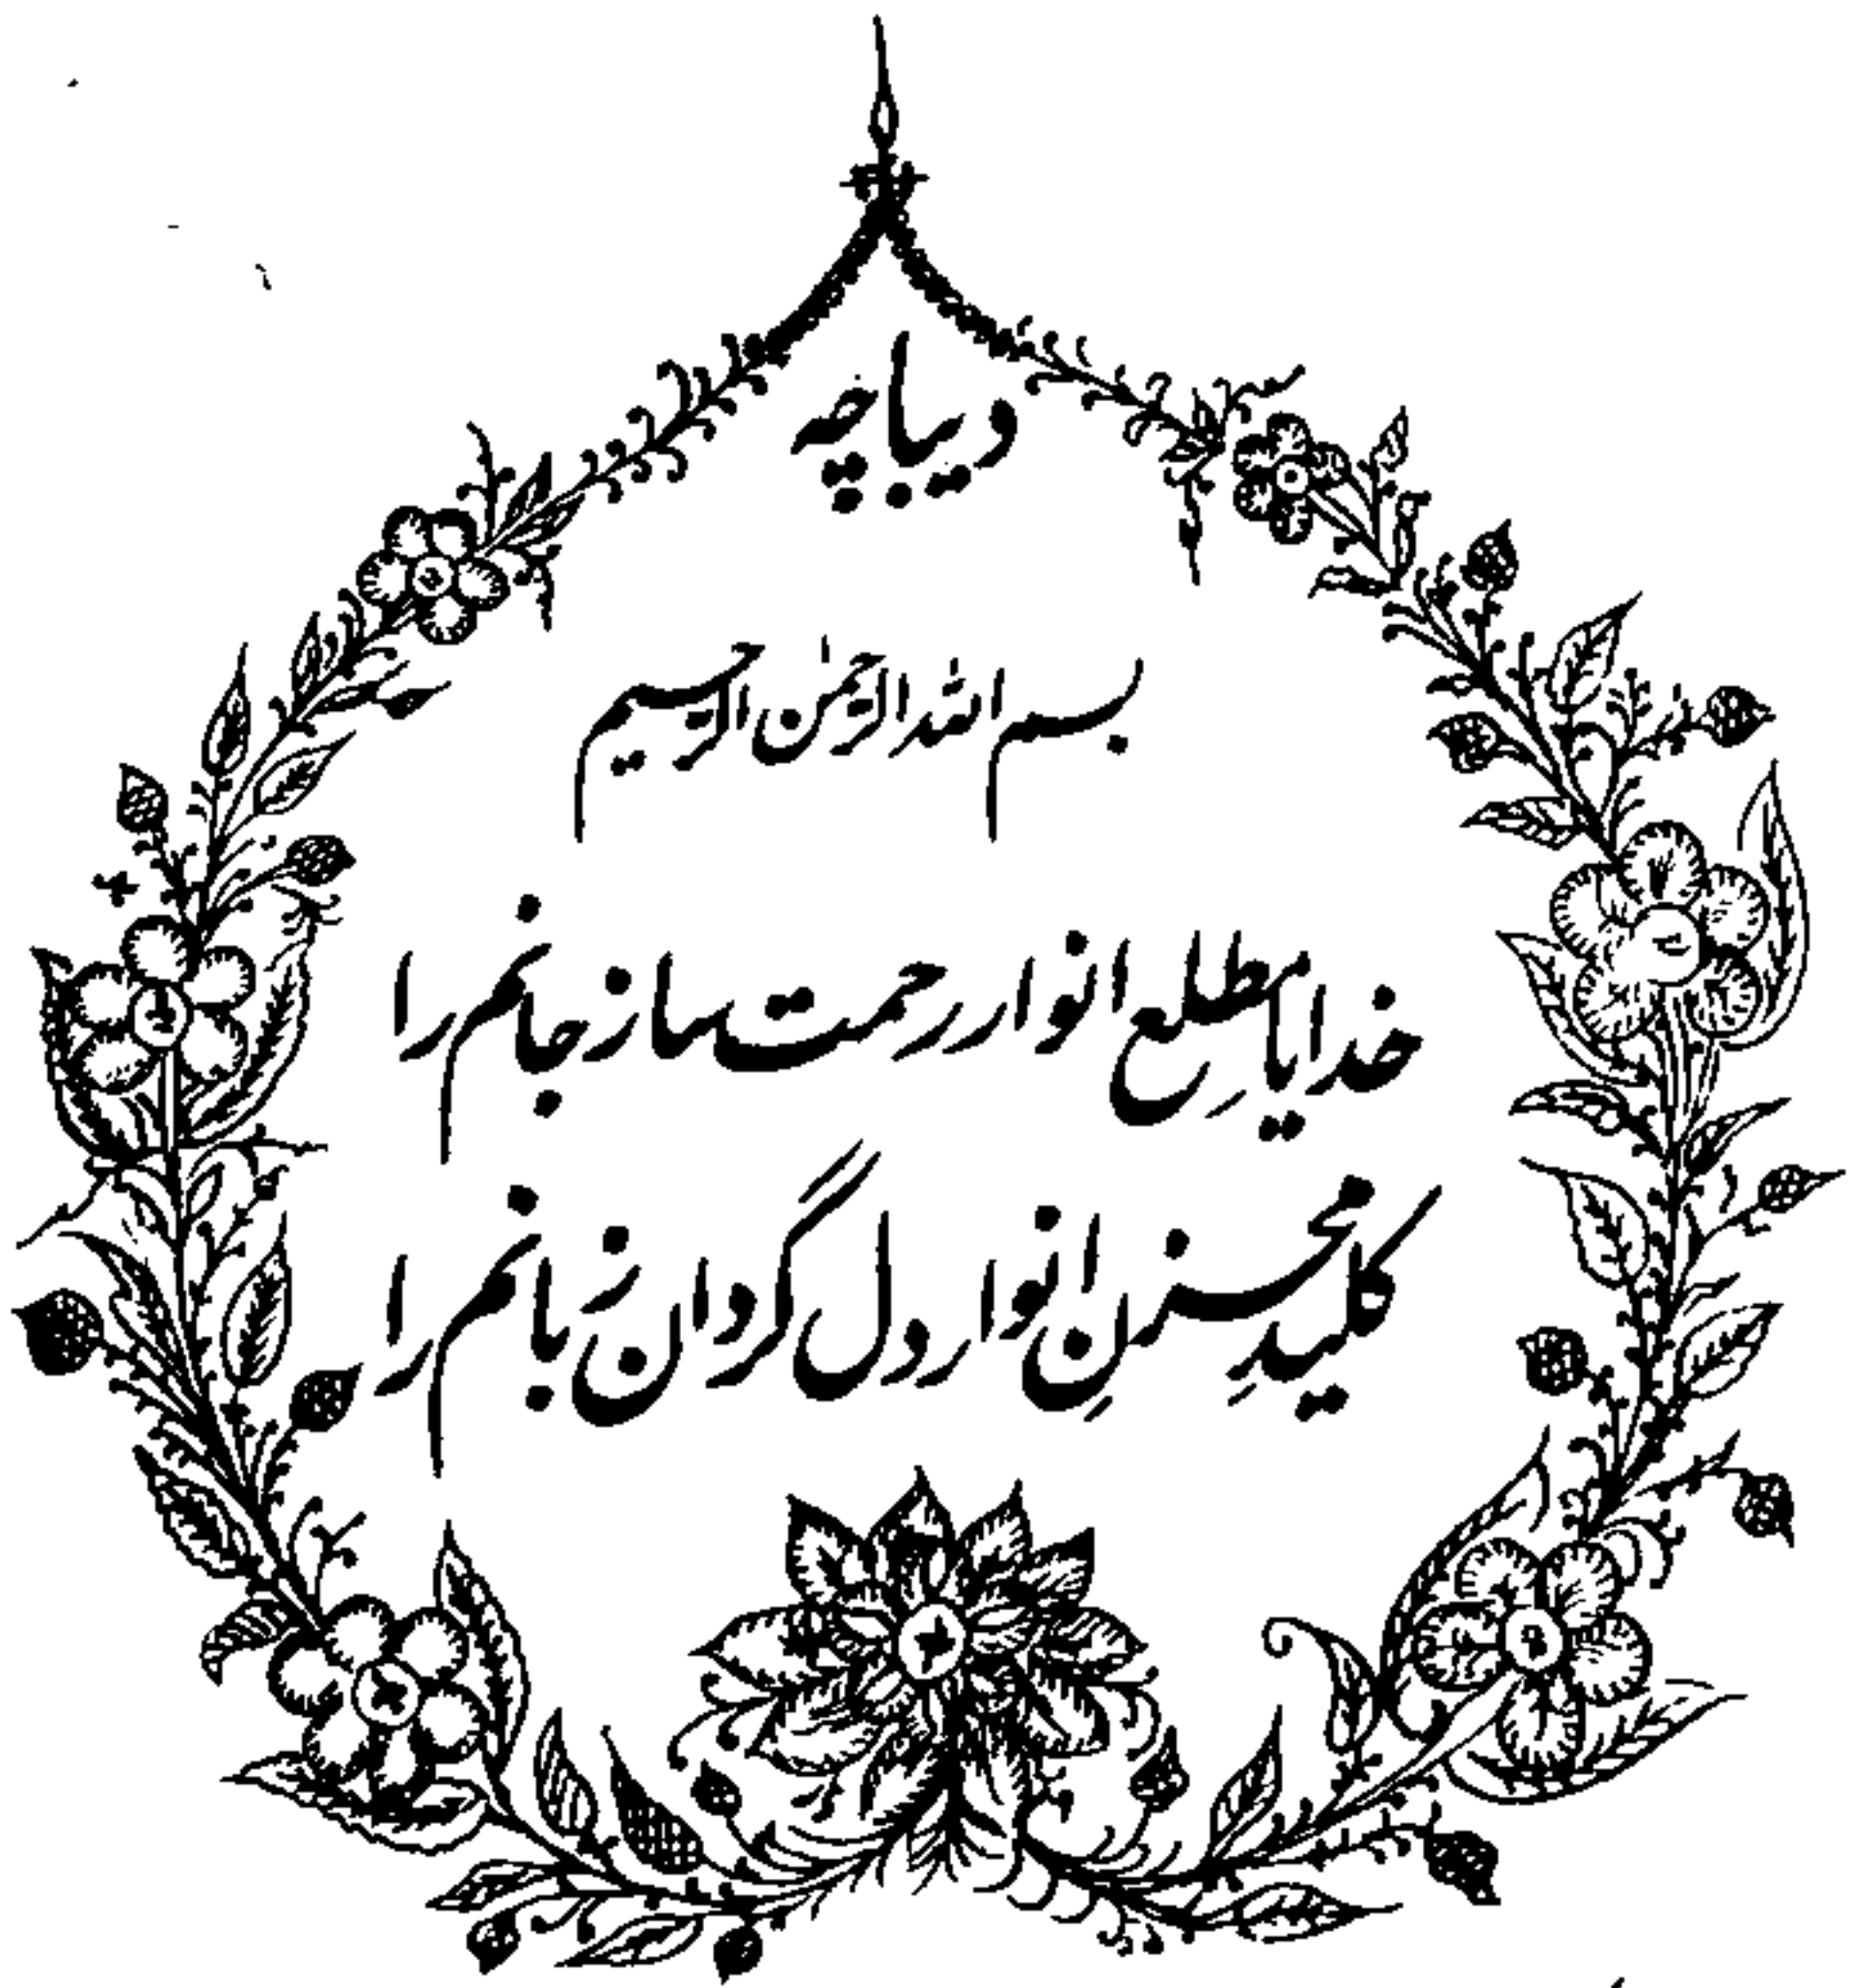 دیباچه
بسم الله الرحمٰن الرحیم
خدایا مطلِع انوار رحمت ساز جانم را
کلیدِ مخزنِ انوار دل گردان زبانم را